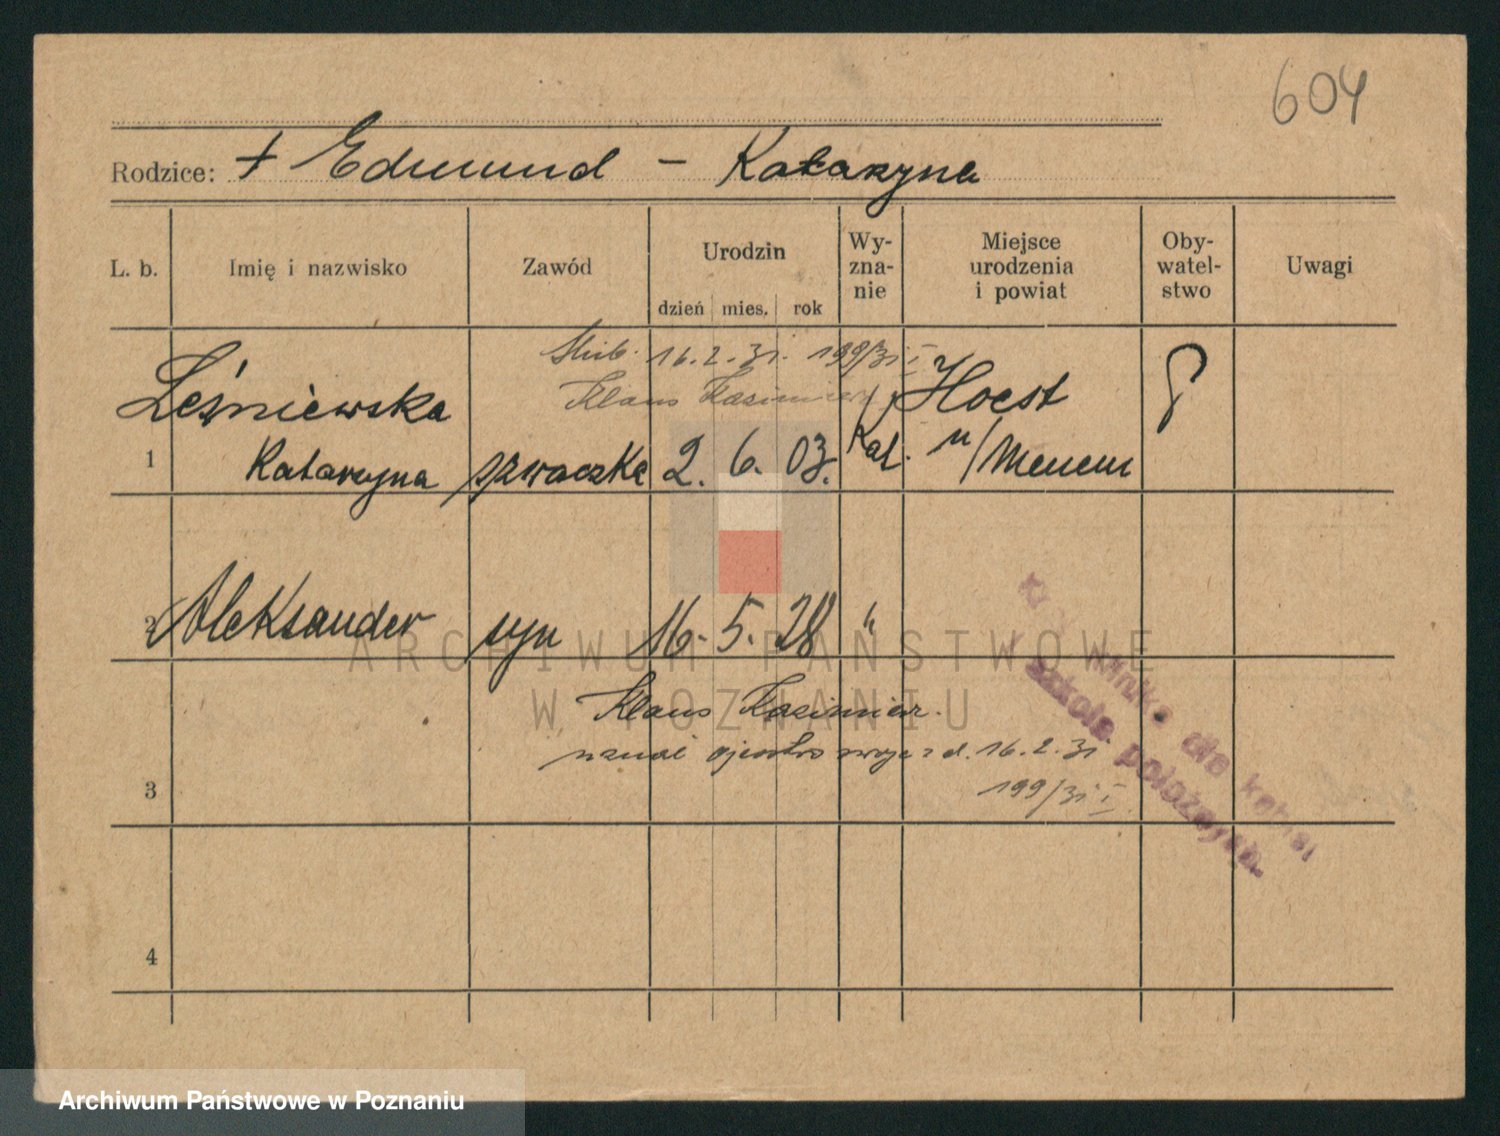 604
Rodzice: + Edmund – Katarzyna
L. b. Imię i nazwisko Zawód Urodzin Wy-zna-nie Miejsce urodzenia i powiat Oby-watel-stwo Uwagi
dzień mies. rok
Ślub. 16.2.31. 199/31 I
Klaus Kazimierz
Leśniewska Hoest
1 Katarzyna szwaczka 2. 6. 03. Kat. n/Menem
P
2 Aleksander syn 16. 5. 28 "
ARCHIWUM PAŃSTWOWE
W POZNANIU
Klaus Kazimierz.
uznał ojcostwo z d. 16.2.31
199/31 I
3
Klinika dla kobiet
i szkoła położnych.
4
Archiwum Państwowe w Poznaniu